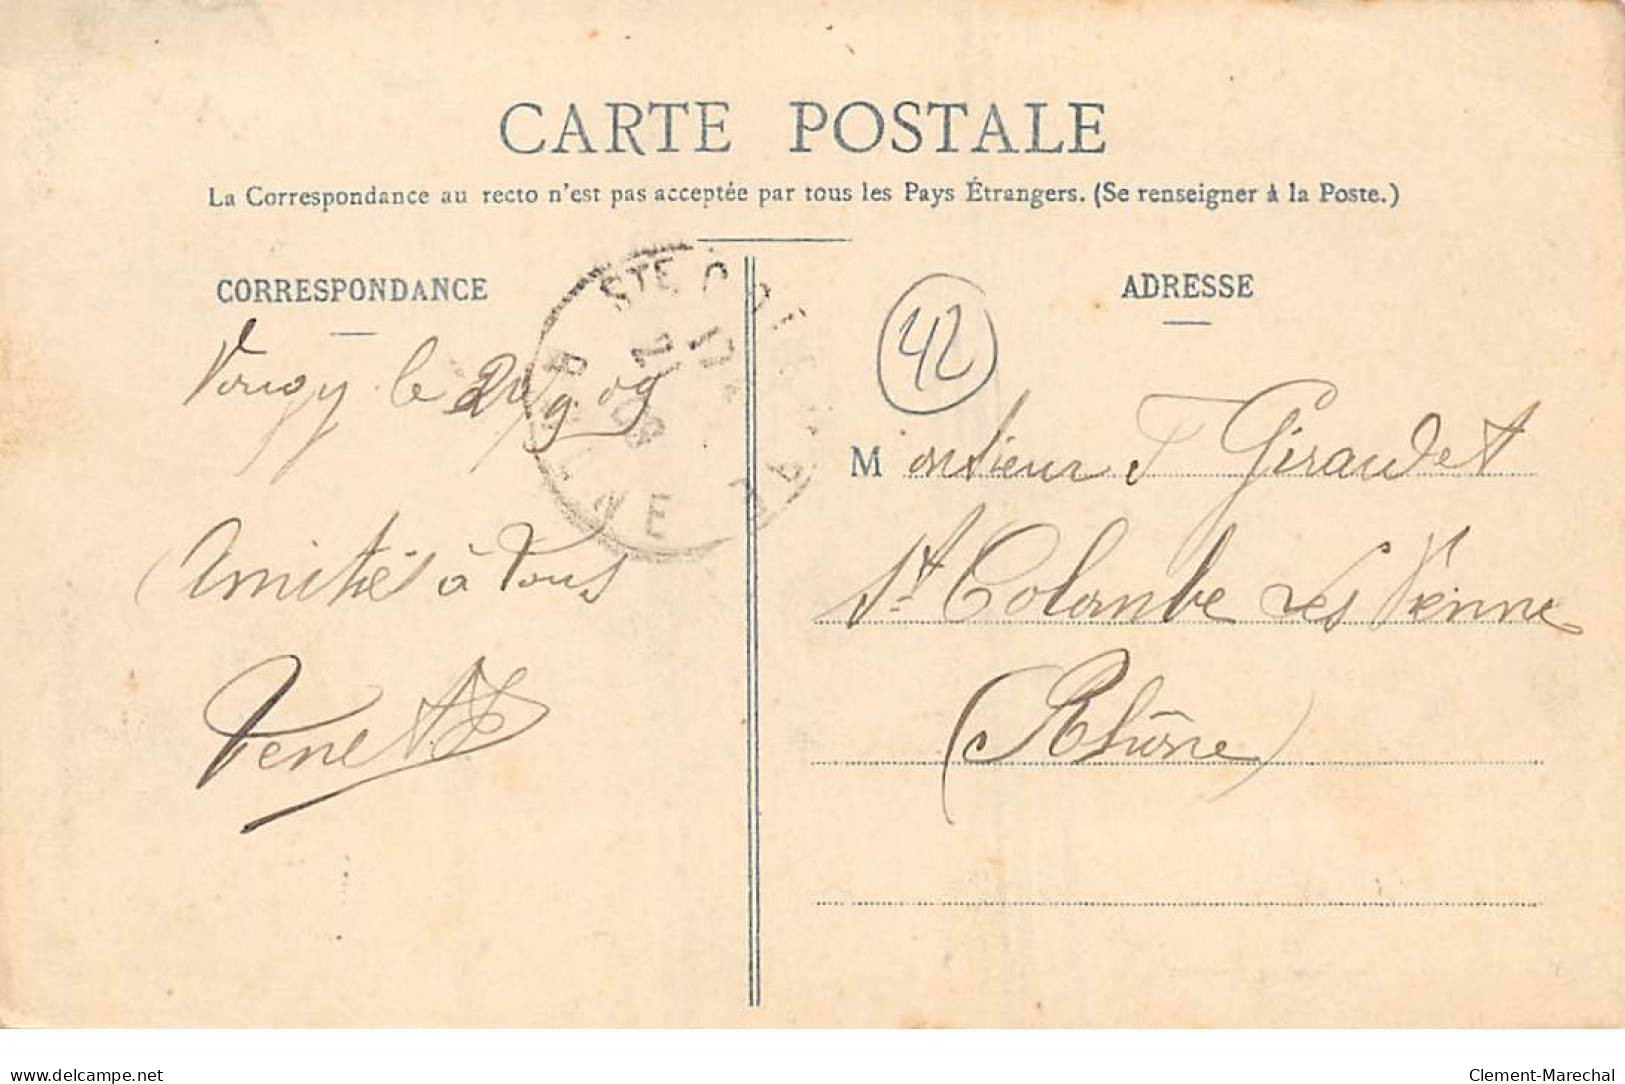 CARTE POSTALE
La Correspondance au recto n'est pas acceptée par tous les Pays Étrangers. (Se renseigner à la Poste.)
CORRESPONDANCE
Vougy le 9. 09
Amitiés à Tous
STE CO
NE
ADRESSE
42
Monsieur F Giraudet
St Colombe les Vienne
(Rhône)
www.delcampe.net
Clement-Marechal